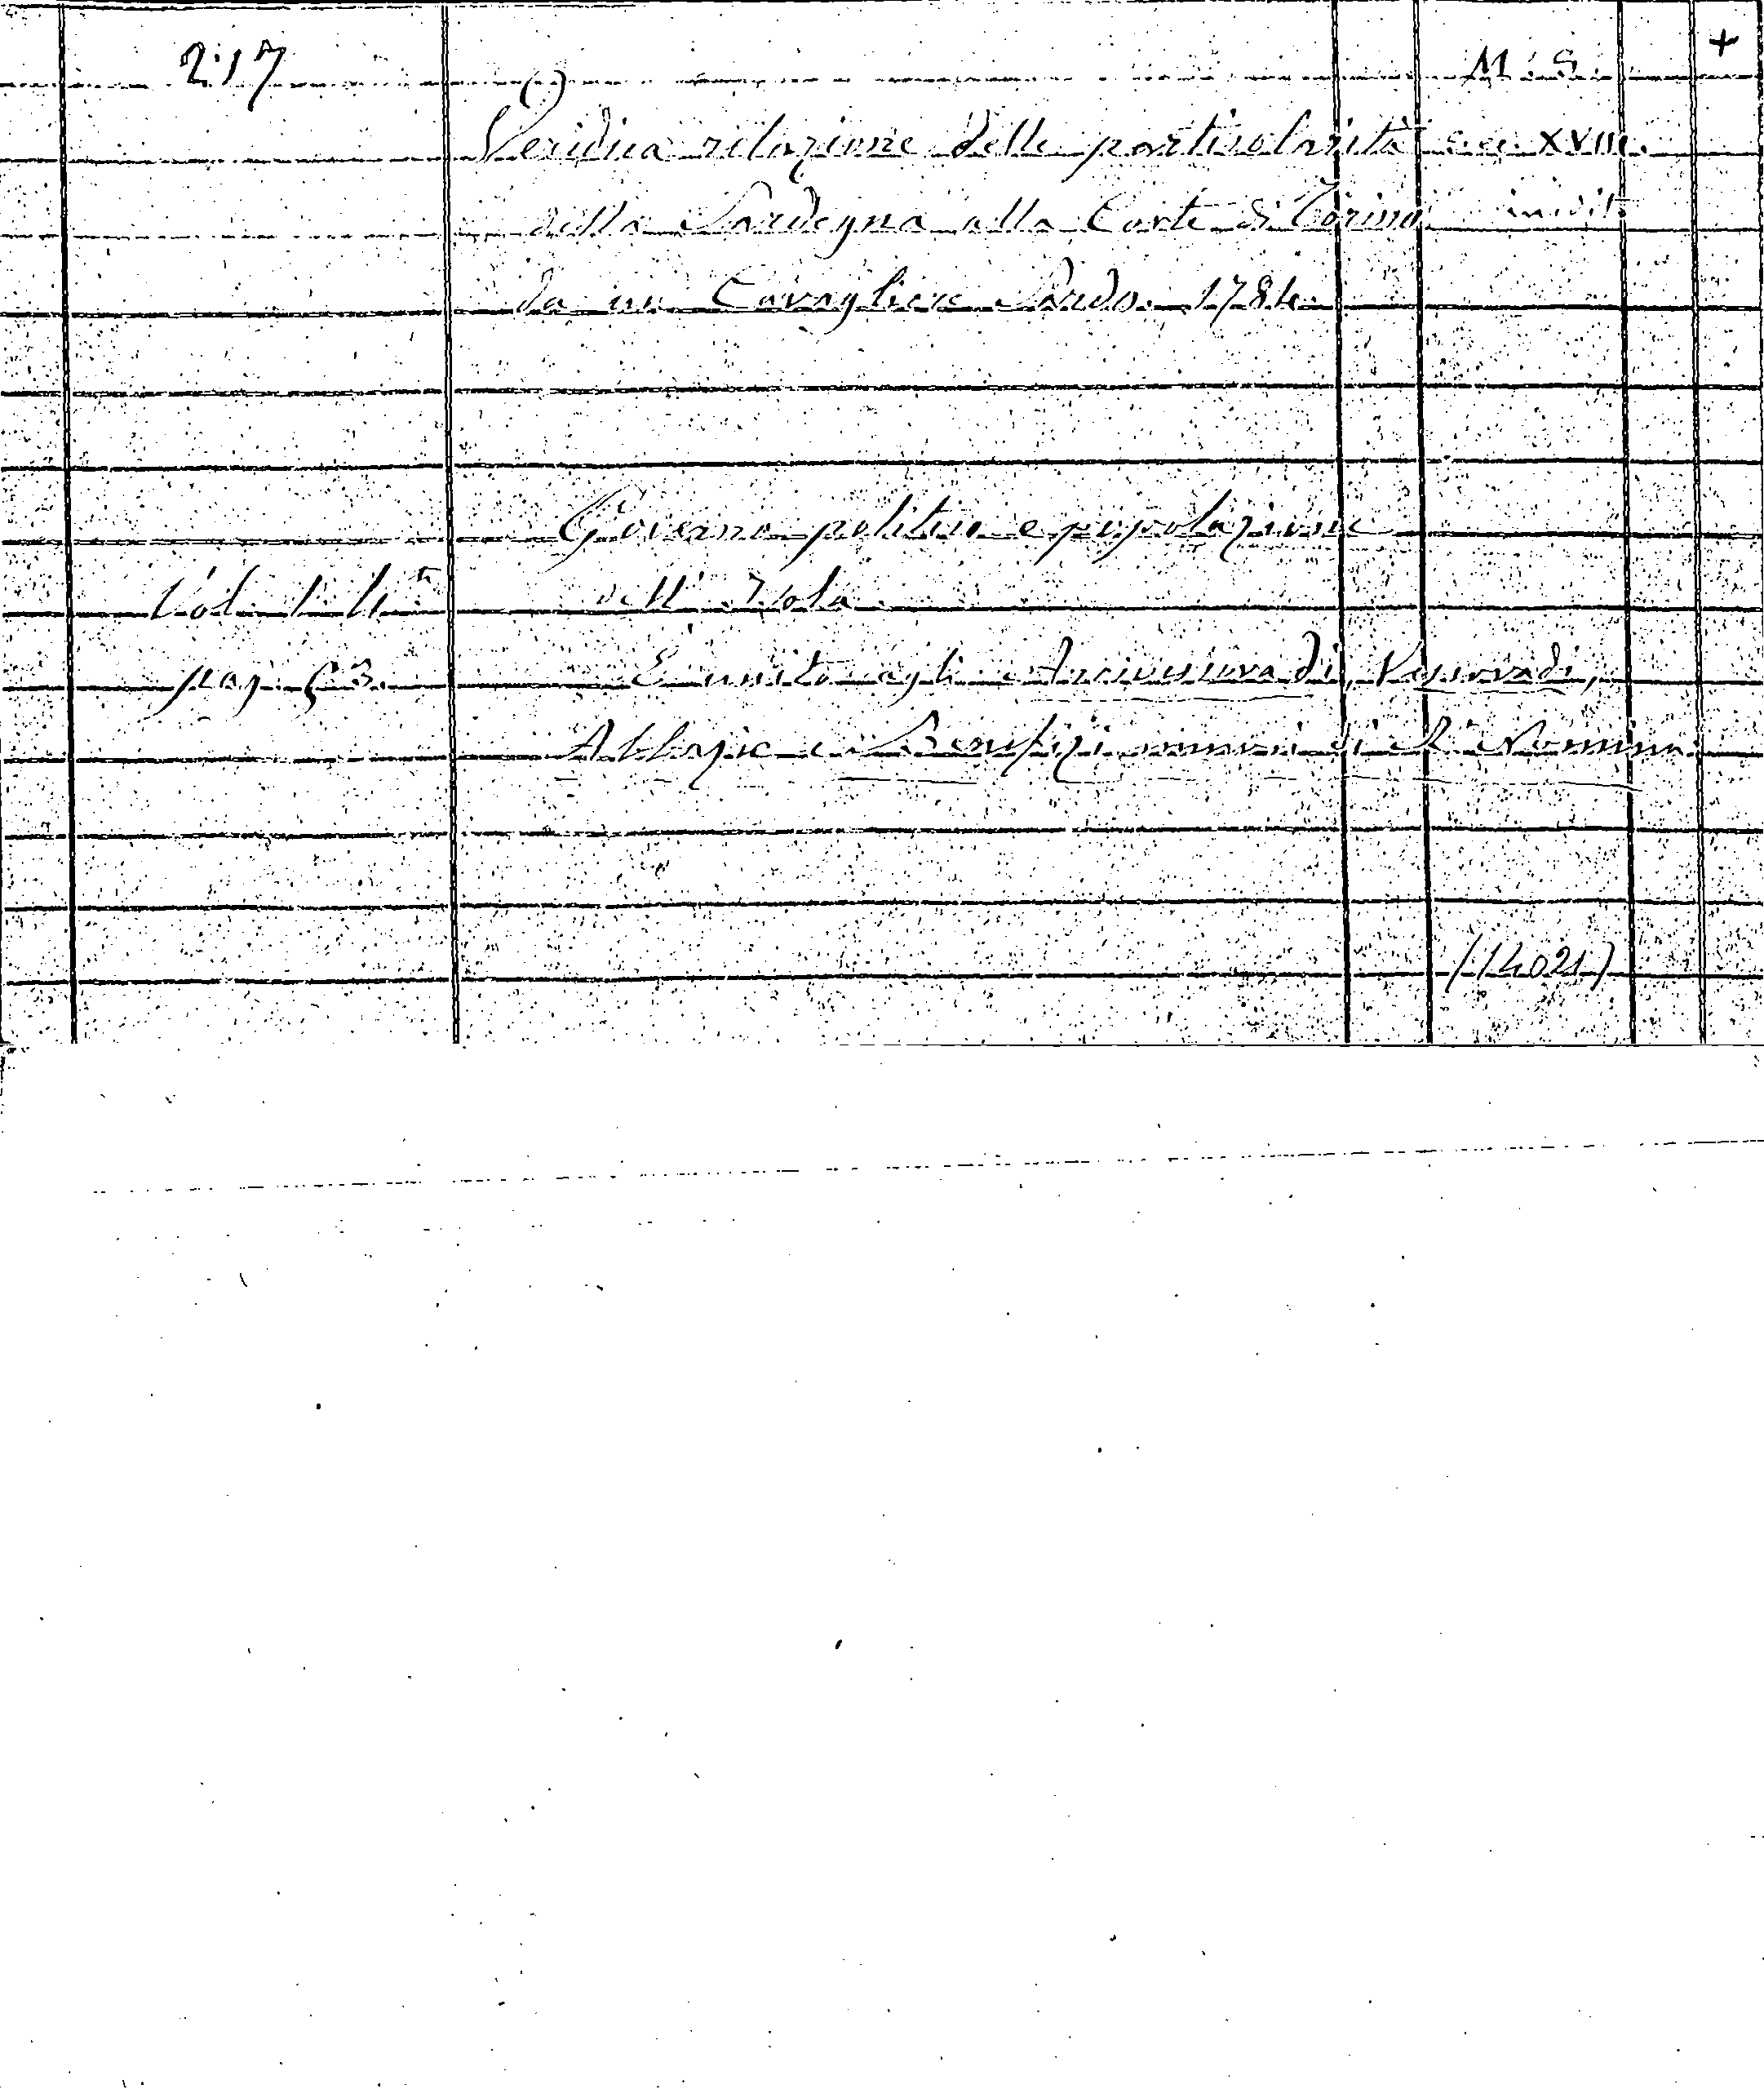 217 (1) M.S. +
Veridica relazione delle particolarità sec. XVIII.
della Sardegna alla Corte di Torino inedit
da un Cavagliere Sardo. 1784.
Governo politico e popolazione
Vol. 1. dell'Isola.
pag. 63. È unito agli Arcivescovadi, Vescovadi,
Abbazie e Benefizi di R. Nomina
(14021)